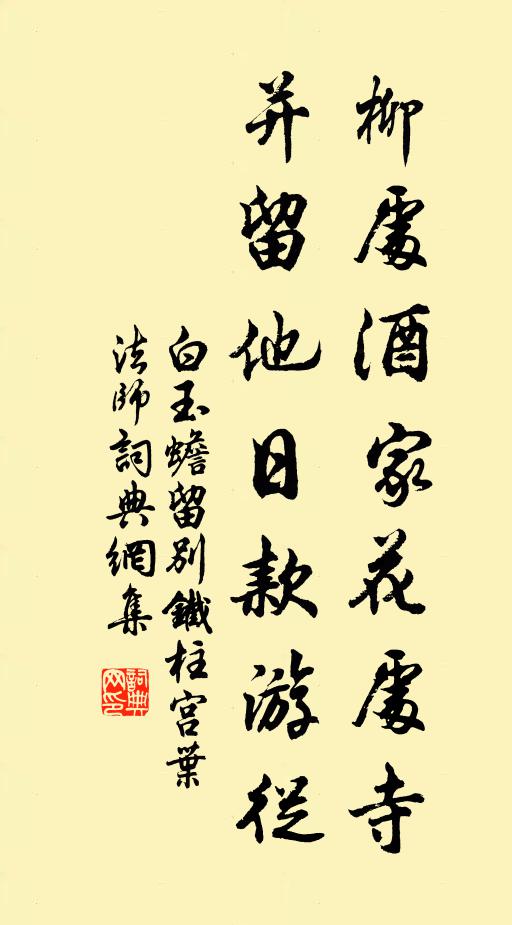 柳處酒家花處寺
并留他日款游從
白玉蟾留別鐵柱宫葉
法師詞典網集
詞典
网印